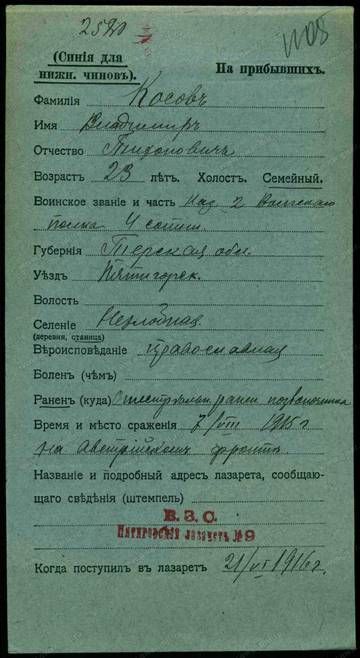 2580
1108
(Синія для
нижн. чиновъ).
На прибывшихъ.
Фамилія Косовъ
Имя Владимиръ
Отчество Тихоновичъ
Возрастъ 23 лѣтъ. Холостъ. Семейный.
Воинское званіе и часть Каз. 2 Волжскаго
полка 4 сотни
Губернія Терская обл.
Уѣздъ Пятигорск.
Волость
Селеніе Незлобная
(деревня, станица)
Вѣроисповѣданіе православн
Боленъ (чѣмъ)
Раненъ (куда) Огнестрѣльн. ранен. позвоночника
Время и мѣсто сраженія 7/VIII 1915 г
на Австрійскомъ фронтѣ
Названіе и подробный адресъ лазарета, сообщаю-
щаго свѣдѣнія (штемпель)
В. З. С.
лазаретъ № 9
Когда поступилъ въ лазаретъ 21/VI 1916 г.